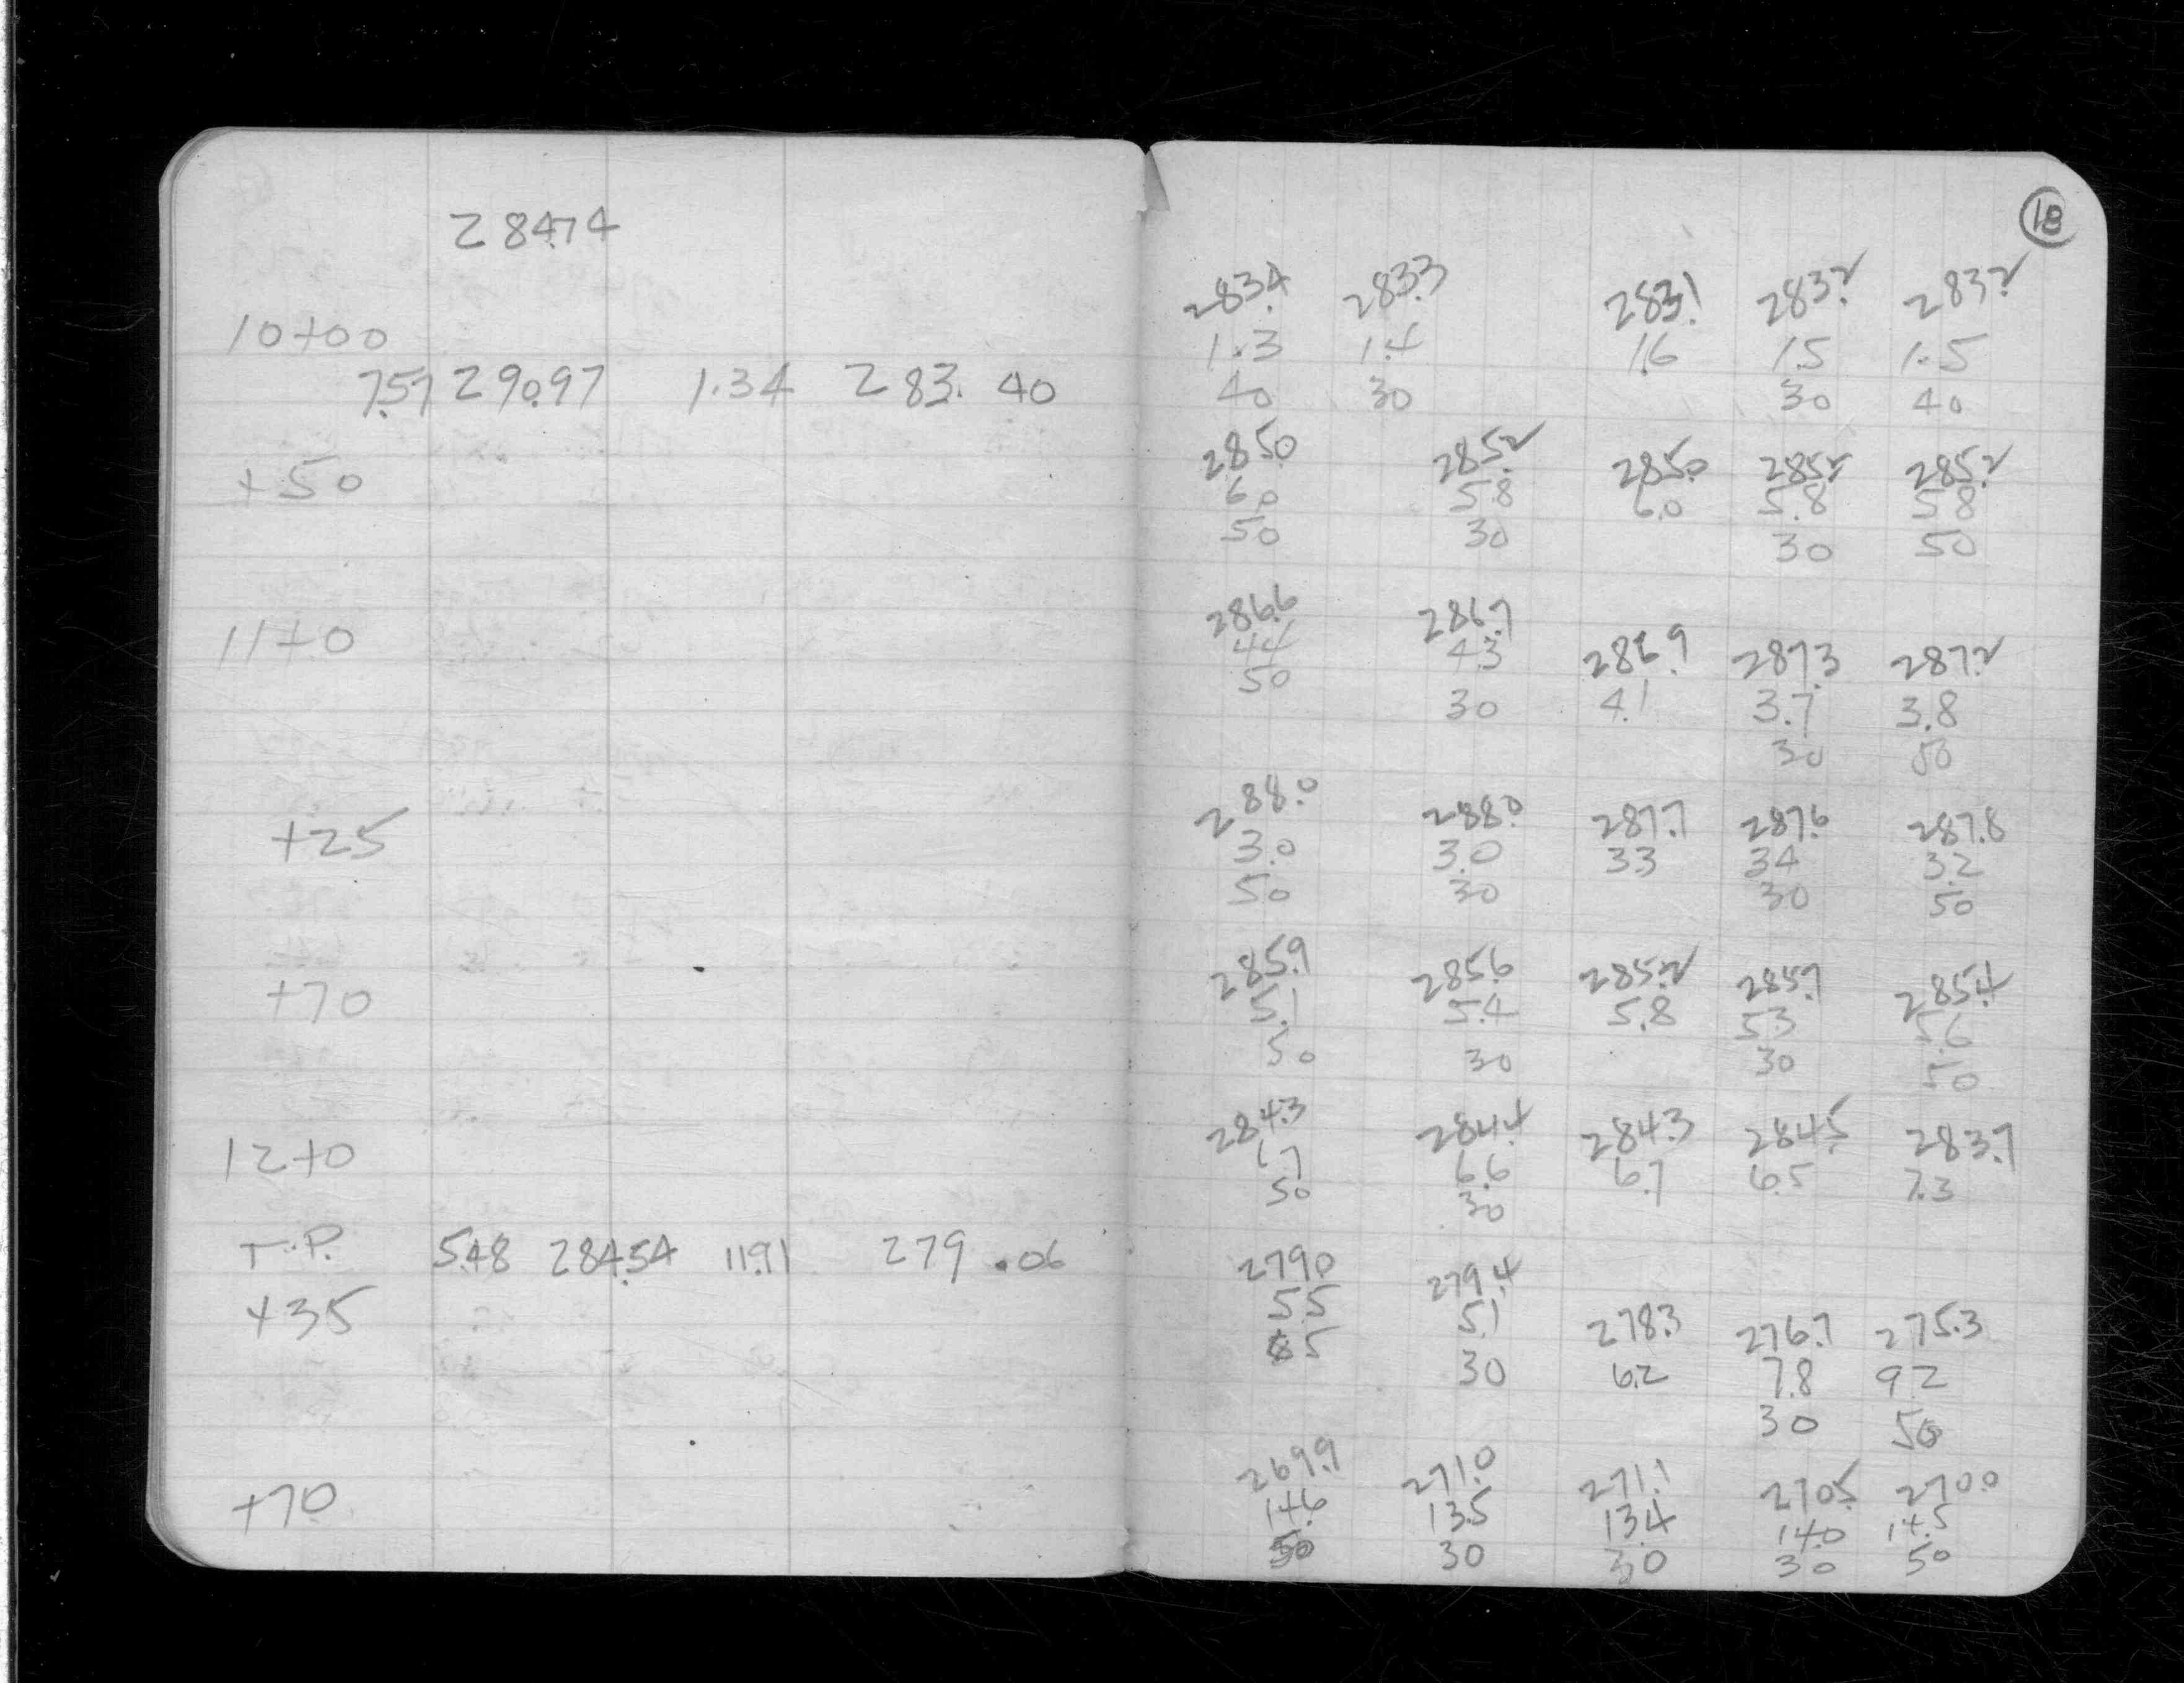 18
284.74
283.4 283.3 283.1 283.2 283.2
10+00 1.3 1.4 1.6 1.5 1.5
7.57 290.97 1.34 283.40 40 30 30 40
285.0 285.2 285.0 285.2 285.2
+50 6.0 5.8 6.0 5.8 5.8
50 30 30 50
286.6 286.7
11+0 4.4 4.3 286.9 287.3 287.2
50 30 4.1 3.7 3.8
30 50
288.0 288.0 287.7 287.6 287.8
+25 3.0 3.0 3.3 3.4 3.2
50 30 30 50
285.9 285.6 285.2 285.7 285.4
+70 5.1 5.4 5.8 5.3 5.6
50 30 30 50
284.3 284.4 284.3 284.5 283.7
12+0 6.7 6.6 6.7 6.5 7.3
50 30
T.P. 5.48 284.54 11.91 279.06 279.0 279.4
+35 5.5 5.1 278.3 276.7 275.3
30 6.2 7.8 9.2
30 50
269.9 271.0 271.1 270.5 270.0
+70 14.6 13.5 13.4 14.0 14.5
50 30 30 30 50